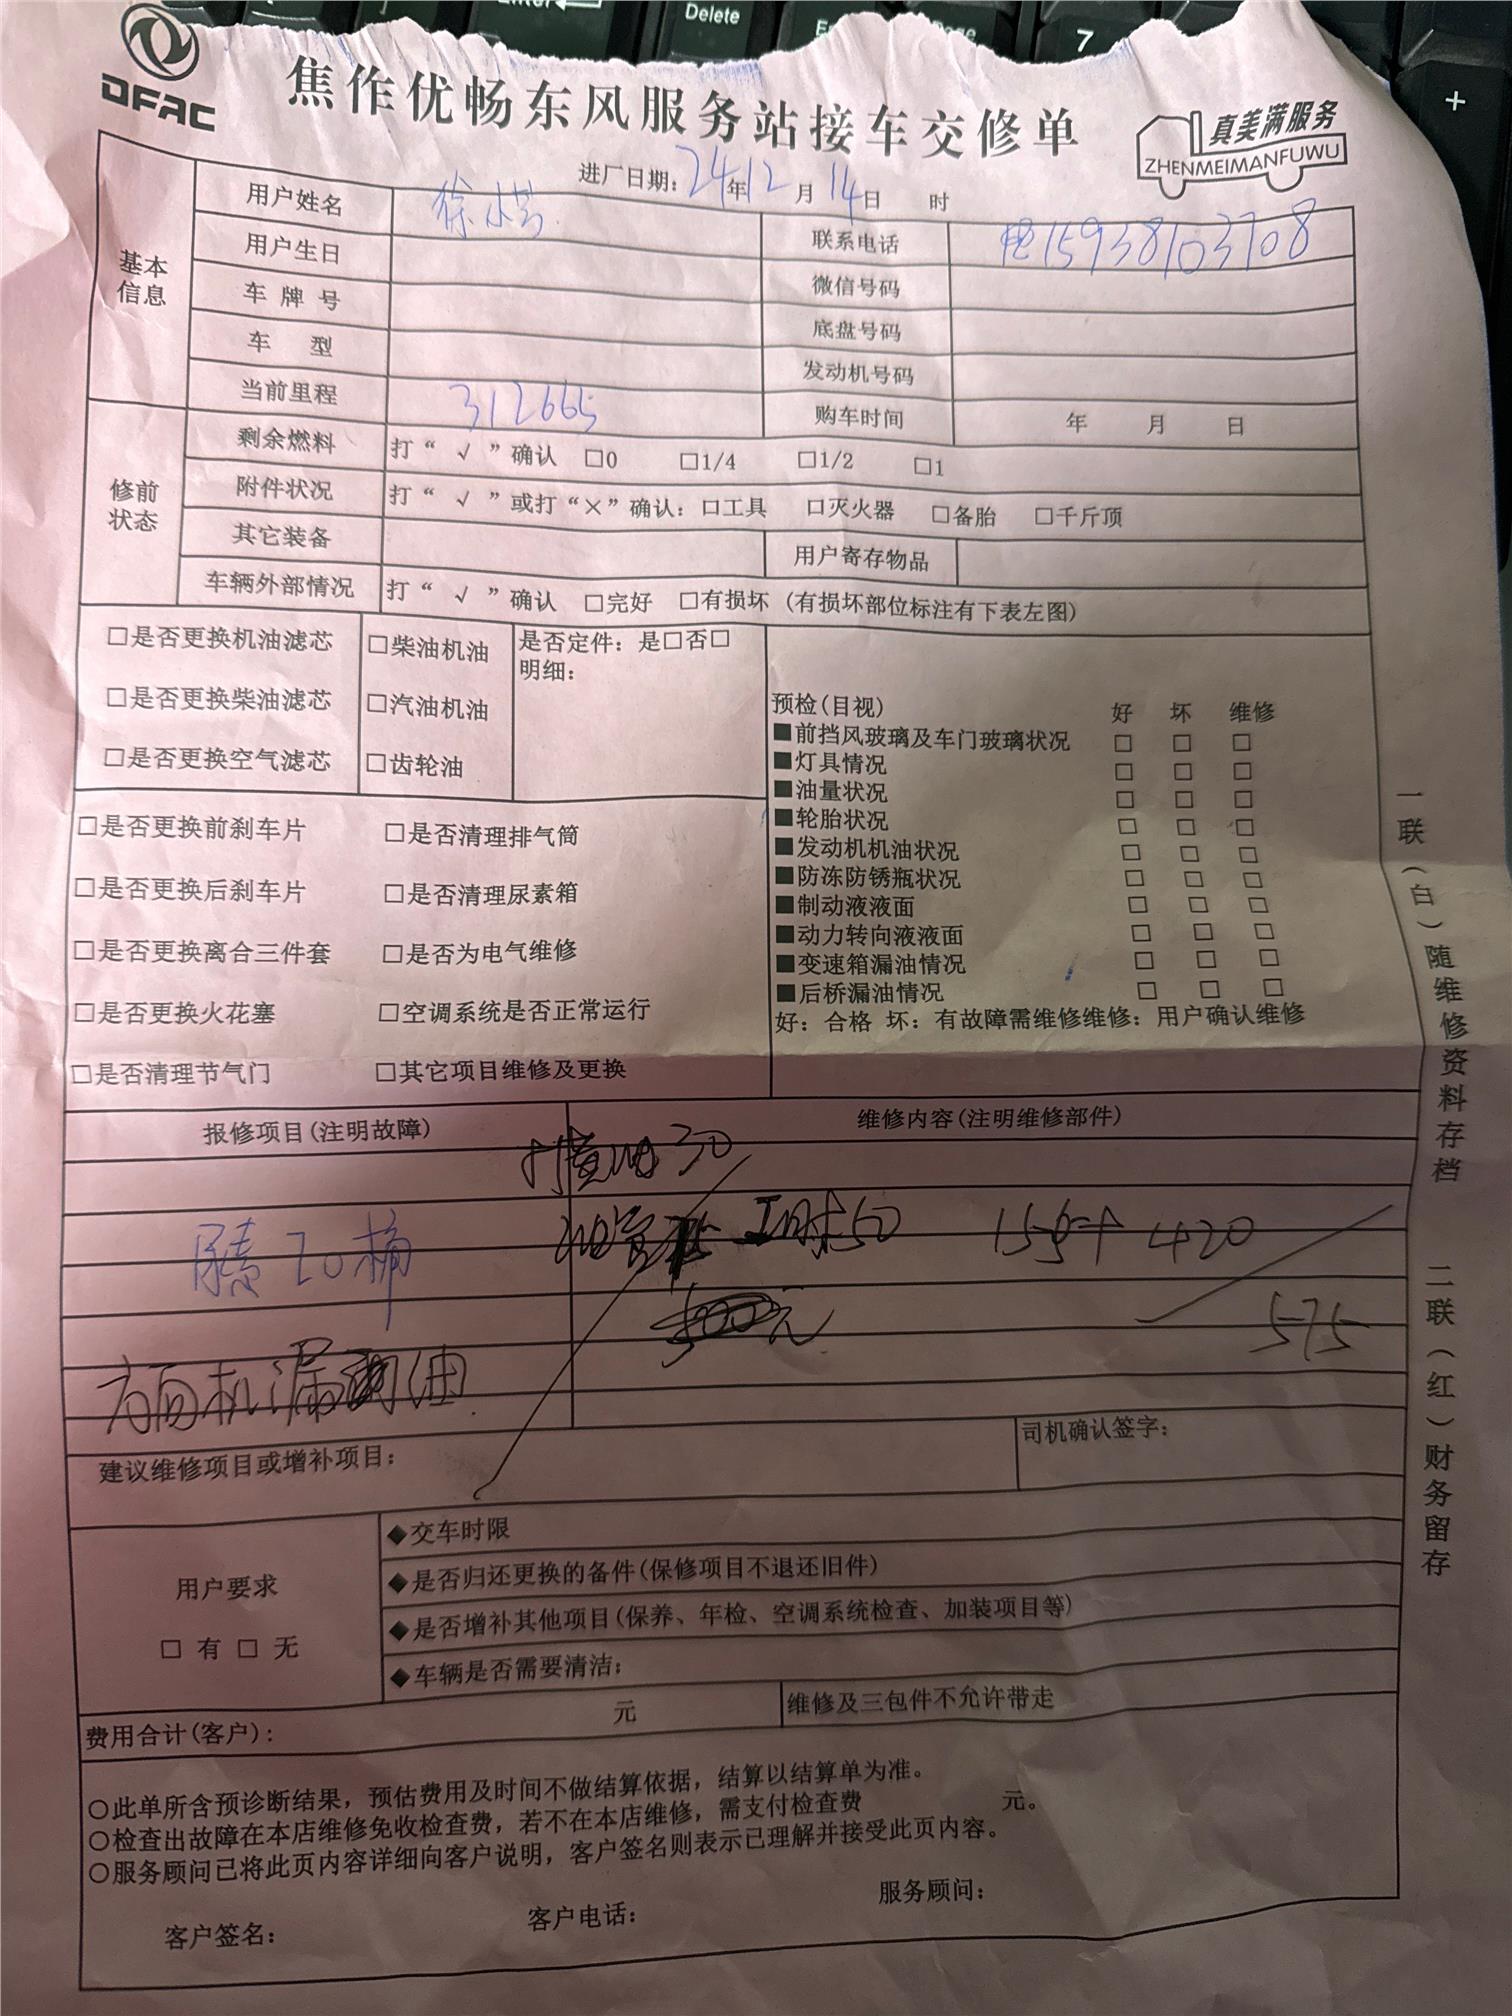 Delete
7
+
DFAC
焦作优畅东风服务站接车交修单
真美满服务
ZHENMEIMANFUWU
进厂日期：24年12月14日 时
基本信息
用户姓名 徐
联系电话 15938103708
用户生日
微信号码
车牌号
底盘号码
车 型
发动机号码
当前里程 312665
购车时间 年 月 日
修前状态
剩余燃料 打“√”确认 □0 □1/4 □1/2 □1
附件状况 打“√”或打“×”确认：□工具 □灭火器 □备胎 □千斤顶
其它装备
用户寄存物品
车辆外部情况 打“√”确认 □完好 □有损坏 (有损坏部位标注有下表左图)
□是否更换机油滤芯 □柴油机油
□是否更换柴油滤芯 □汽油机油
□是否更换空气滤芯 □齿轮油
是否定件：是□否□
明细：
□是否更换前刹车片 □是否清理排气筒
□是否更换后刹车片 □是否清理尿素箱
□是否更换离合三件套 □是否为电气维修
□是否更换火花塞 □空调系统是否正常运行
□是否清理节气门 □其它项目维修及更换
预检(目视) 好 坏 维修
■前挡风玻璃及车门玻璃状况 □ □ □
■灯具情况 □ □ □
■油量状况 □ □ □
■轮胎状况 □ □ □
■发动机机油状况 □ □ □
■防冻防锈瓶状况 □ □ □
■制动液液面 □ □ □
■动力转向液液面 □ □ □
■变速箱漏油情况 □ □ □
■后桥漏油情况 □ □ □
好：合格 坏：有故障需维修维修：用户确认维修
报修项目(注明故障) 维修内容(注明维修部件)
打黄油30
尿素20桶
油管 工时50 155+420
500元
575
方向机漏油
建议维修项目或增补项目：
司机确认签字：
用户要求
□ 有 □ 无
◆交车时限
◆是否归还更换的备件(保修项目不退还旧件)
◆是否增补其他项目(保养、年检、空调系统检查、加装项目等)
◆车辆是否需要清洁；
费用合计(客户)： 元
维修及三包件不允许带走
○此单所含预诊断结果，预估费用及时间不做结算依据，结算以结算单为准。
○检查出故障在本店维修免收检查费，若不在本店维修，需支付检查费 元。
○服务顾问已将此页内容详细向客户说明，客户签名则表示已理解并接受此页内容。
客户签名： 客户电话： 服务顾问：
一联(白)随维修资料存档 二联(红)财务留存